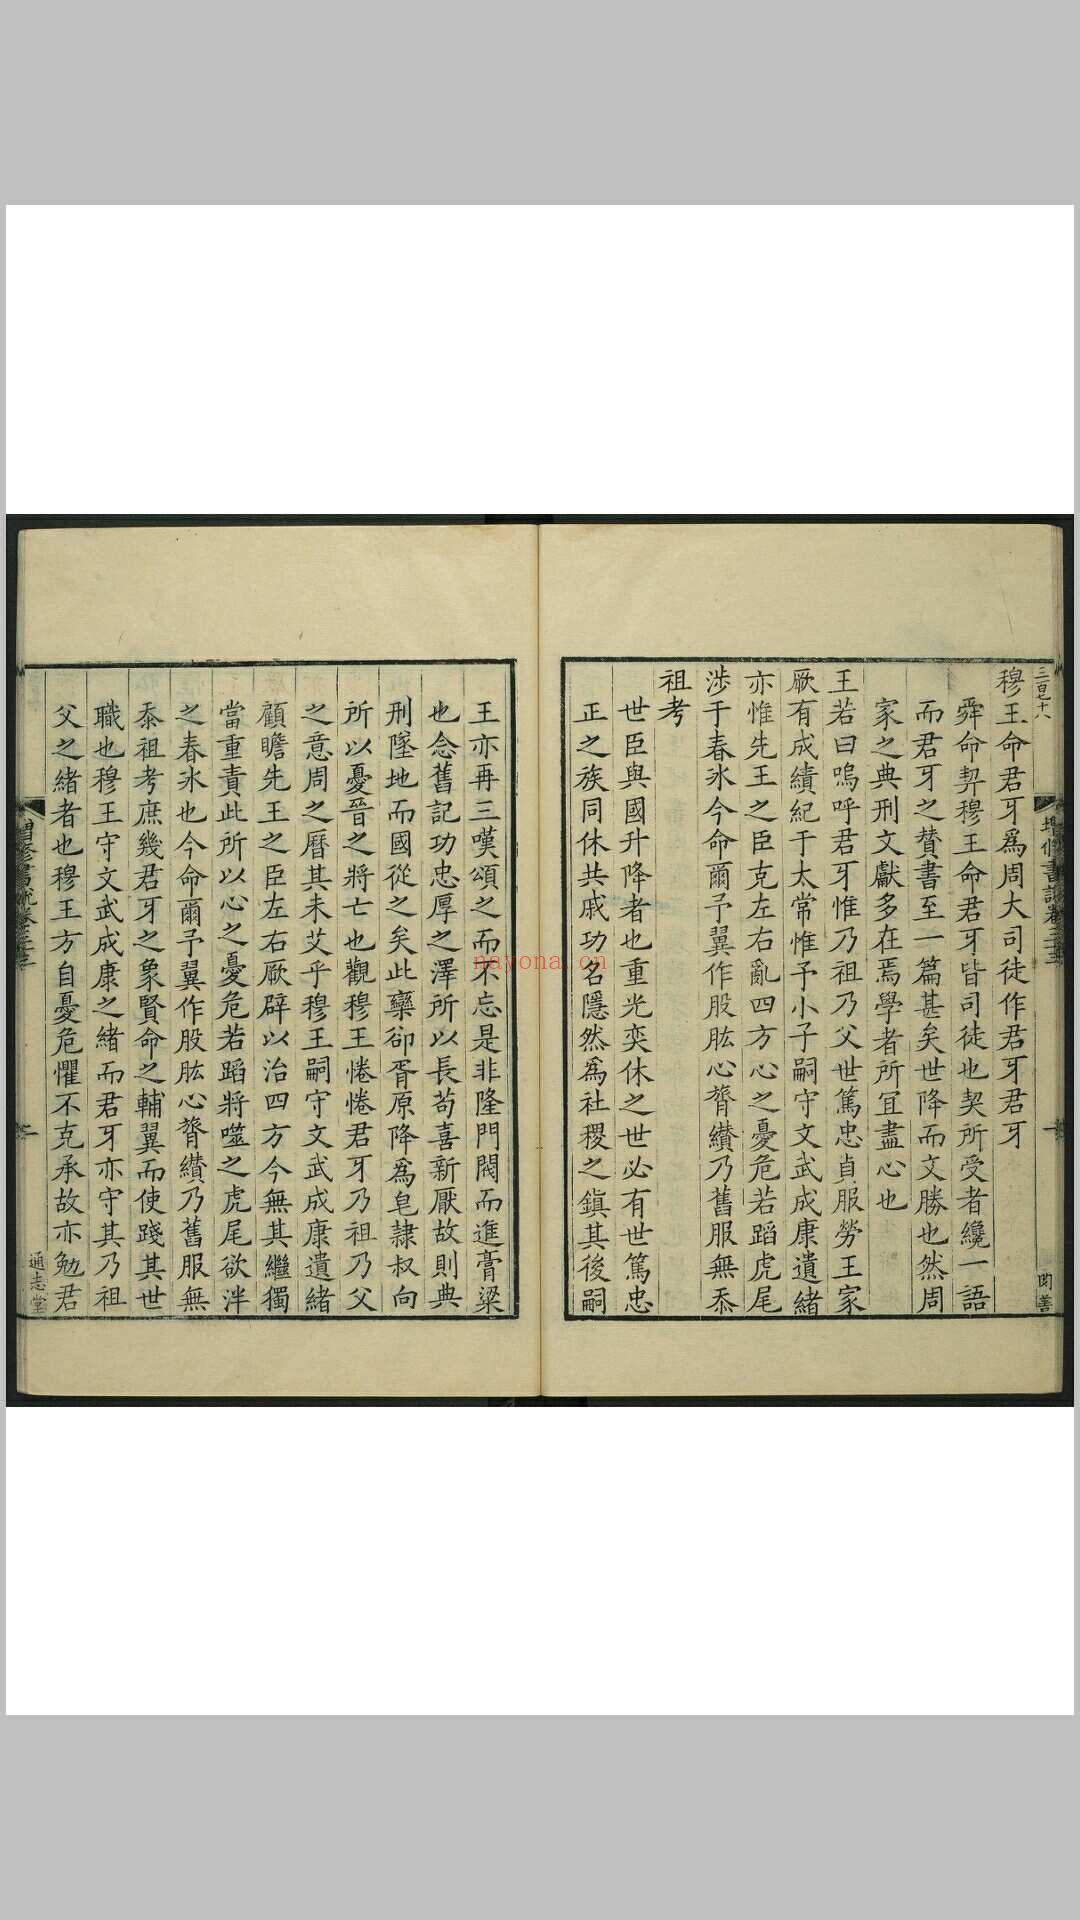 三百七十八
穆王命君牙爲周大司徒作君牙君牙
舜命契穆王命君牙皆司徒也契所受者纔一語
而君牙之賛書至一篇甚矣世降而文勝也然周
家之典刑文獻多在焉學者所冝盡心也
王若曰嗚呼君牙惟乃祖乃父世篤忠貞服勞王家
厥有成績紀于太常惟予小子嗣守文武成康遺緒
亦惟先王之臣克左右亂四方心之憂危若蹈虎尾
涉于春冰今命爾予翼作股肱心膂纘乃舊服無忝
祖考
世臣與國升降者也重光奕休之世必有世篤忠
正之族同休共戚功名隱然爲社稷之鎮其後嗣
王亦再三嘆頌之而不忘是非隆門閥而進膏粱
也念舊記功忠厚之澤所以長茍喜新厭故則典
刑墜地而國從之矣此欒郤胥原降爲皂隷叔向
所以憂晉之將亡也觀穆王惓惓君牙乃祖乃父
之意周之曆其未艾乎穆王嗣守文武成康遺緒
顧瞻先王之臣左右厥辟以治四方今無其繼獨
當重責此所以心之憂危若蹈將噬之虎尾欲泮
之春冰也今命爾予翼作股肱心膂纘乃舊服無
忝祖考庶幾君牙之象賢命之輔翼而使踐其世
職也穆王守文武成康之緒而君牙亦守其乃祖
父之緒者也穆王方自憂危懼不克承故亦勉君
通志堂
nayona.cn